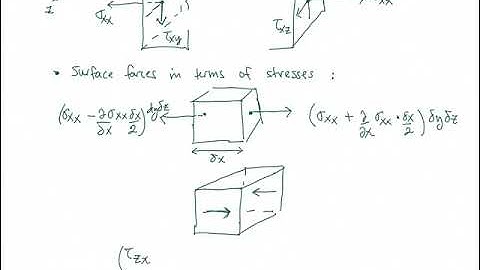 σxx
τxy
τxz
• Surface forces in terms of stresses :
(σxx − ∂σxx/∂x δx/2) δyδz
(σxx + ∂/∂x σxx · δx/2) δyδz
δx
(τzx